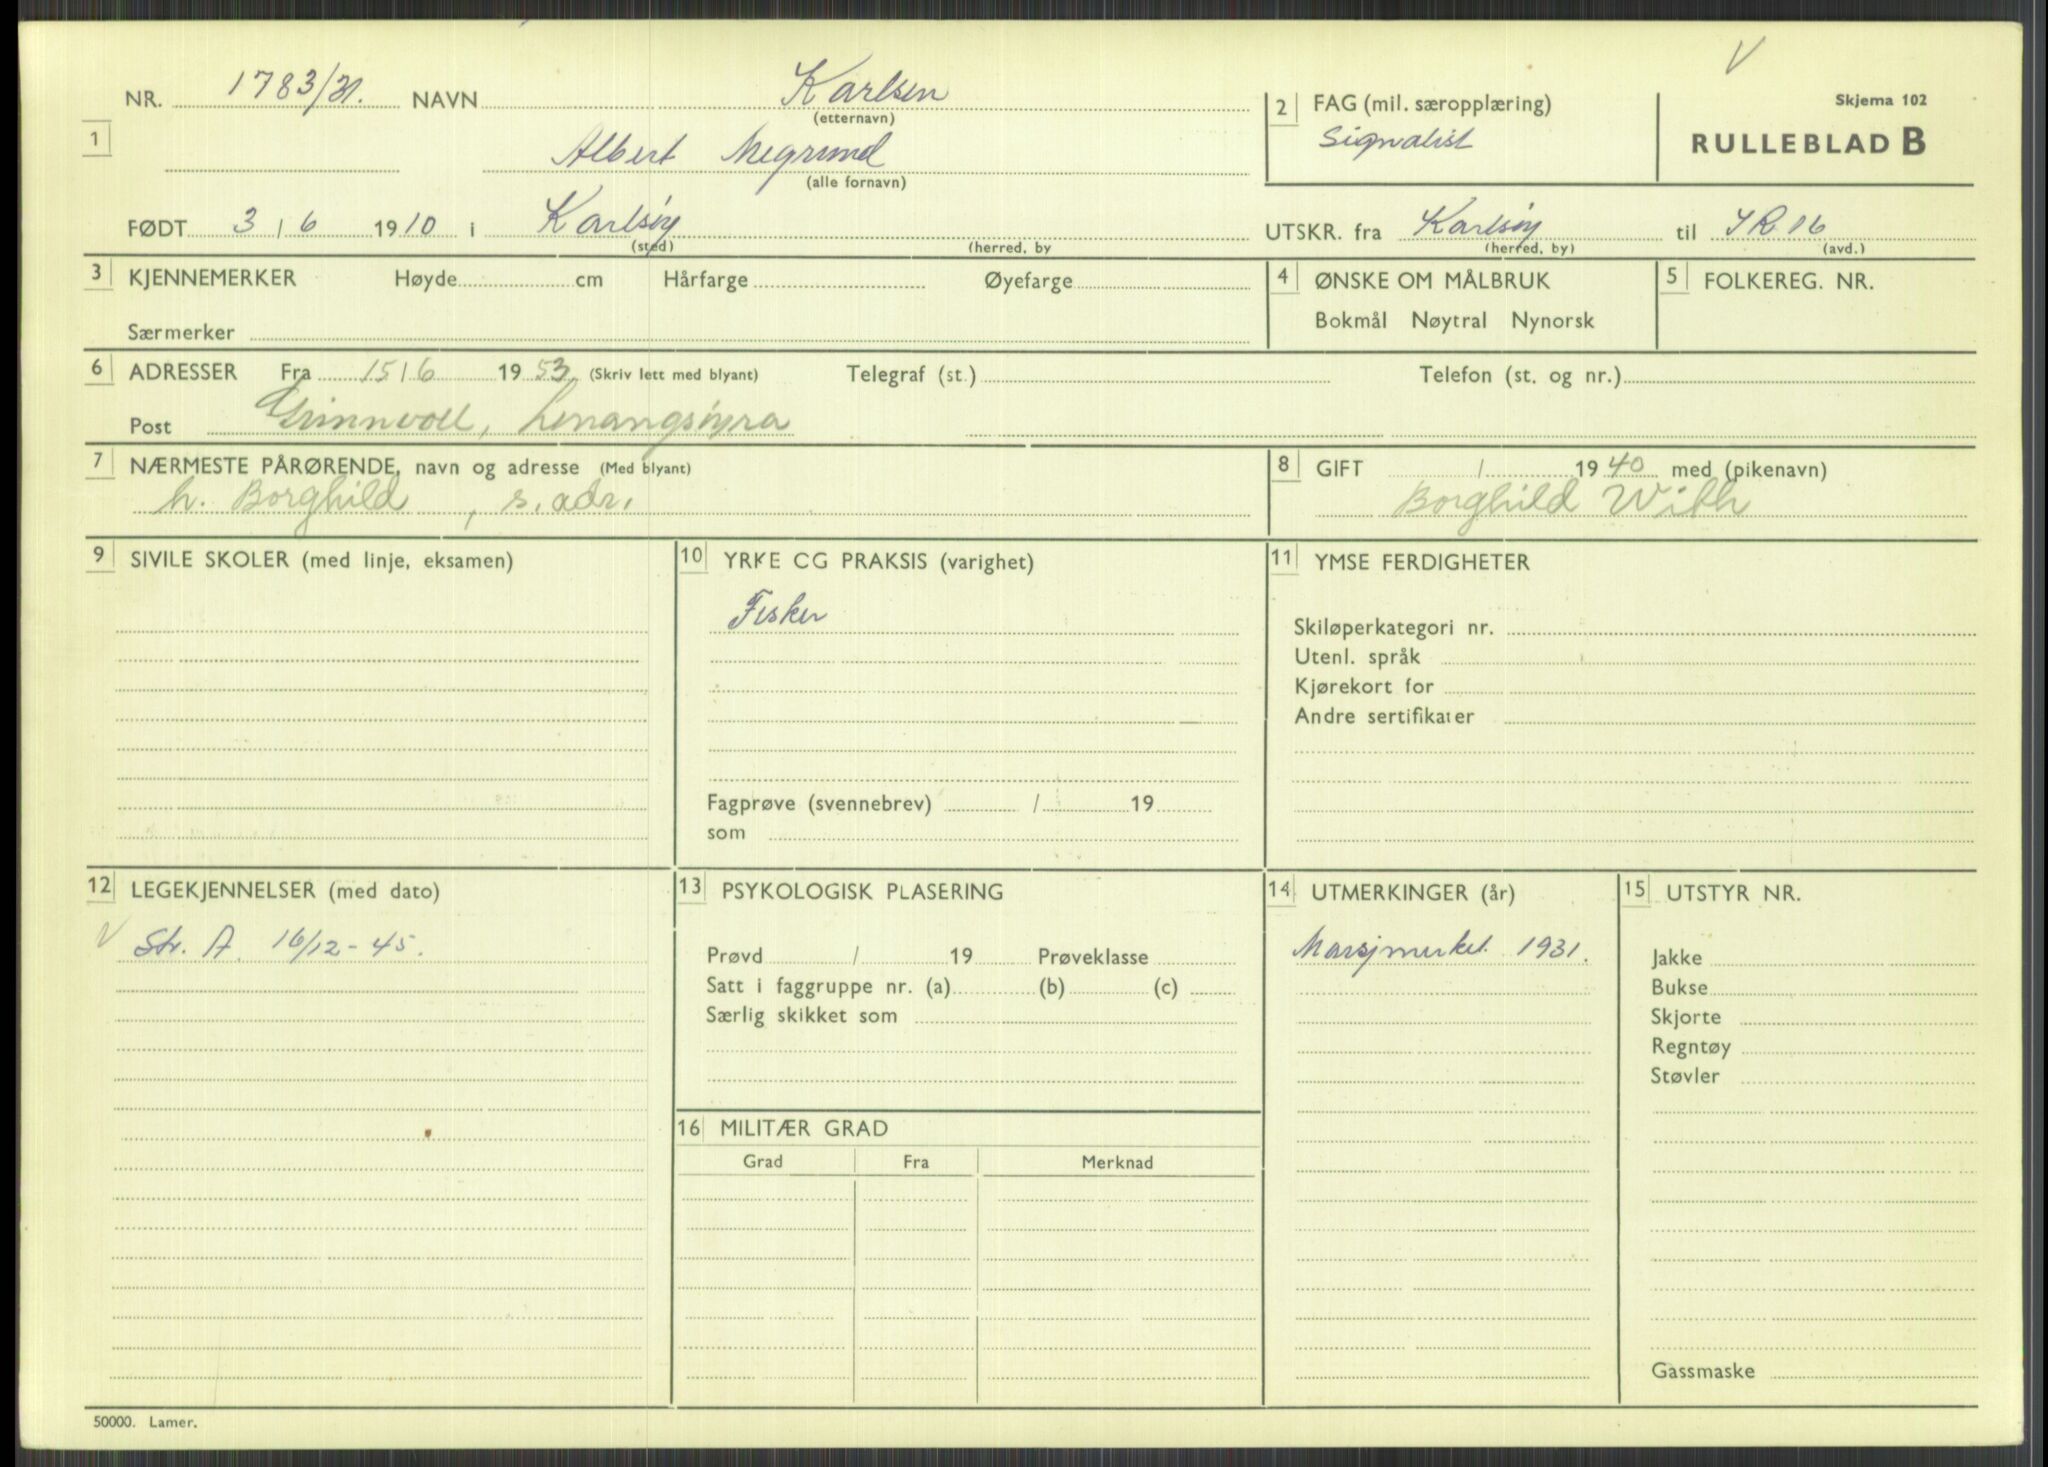 V
NR. 1783/31. NAVN Karlsen
(etternavn)
2 FAG (mil. særopplæring)
Signalist
Skjema 102
RULLEBLAD B
1 Albert Megrund
(alle fornavn)
FØDT 3 / 6 1910 i Karlsøy
(sted) (herred, by
UTSKR. fra Karlsøy til IR 16
(herred, by) (avd.)
3 KJENNEMERKER Høyde cm Hårfarge Øyefarge
Særmerker
4 ØNSKE OM MÅLBRUK
Bokmål Nøytral Nynorsk
5 FOLKEREG. NR.
6 ADRESSER Fra 15/6 1953 (Skriv lett med blyant) Telegraf (st.) Telefon (st. og nr.)
Post Grunnvoll, Lenangsøyra
7 NÆRMESTE PÅRØRENDE, navn og adresse (Med blyant)
h. Borghild, s. adr.
8 GIFT / 1940 med (pikenavn)
Borghild With
9 SIVILE SKOLER (med linje, eksamen)
10 YRKE CG PRAKSIS (varighet)
Fisker
Fagprøve (svennebrev) / 19
som
11 YMSE FERDIGHETER
Skiløperkategori nr.
Utenl. språk
Kjørekort for
Andre sertifikater
12 LEGEKJENNELSER (med dato)
V Str. A. 16/12-45.
13 PSYKOLOGISK PLASERING
Prøvd / 19 Prøveklasse
Satt i faggruppe nr. (a) (b) (c)
Særlig skikket som
14 UTMERKINGER (år)
Marsjmerket 1931.
15 UTSTYR NR.
Jakke
Bukse
Skjorte
Regntøy
Støvler
Gassmaske
16 MILITÆR GRAD
Grad Fra Merknad
50000. Lamer.